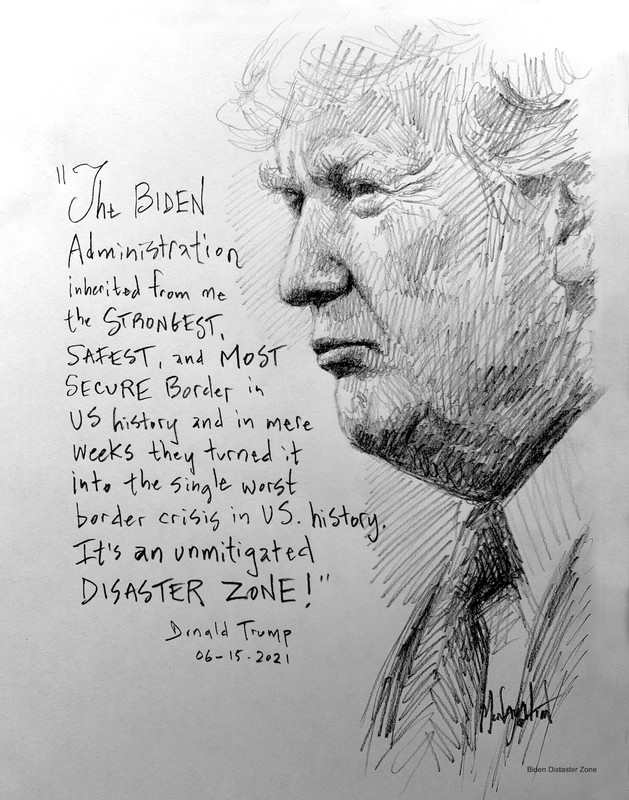 "The BIDEN
Administration
inherited from me
the STRONGEST,
SAFEST, and MOST
SECURE Border in
US history and in mere
weeks they turned it
into the single worst
border crisis in US. history.
It's an unmitigated
DISASTER ZONE!"
Donald Trump
06-15-2021
Biden Distaster Zone